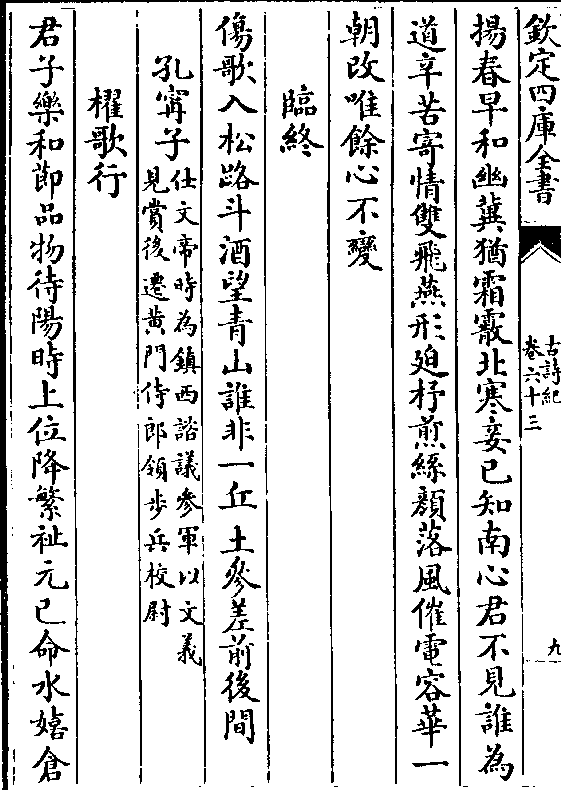 欽定四庫全書
古詩紀
卷六十三
九
揚春早和幽冀猶霜霰北寒妾已知南心君不見誰為
道辛苦寄情雙飛燕形廹杼煎絲顏落風催電容華一
朝改唯餘心不變
臨終
傷歌入松路斗酒望青山誰非一丘土參差前後間
孔甯子
仕文帝時為鎮西諮議參軍以文義
見賞後遷黄門侍郎領步兵校尉
櫂歌行
君子樂和節品物待陽時上位降繁祉元巳命水嬉倉